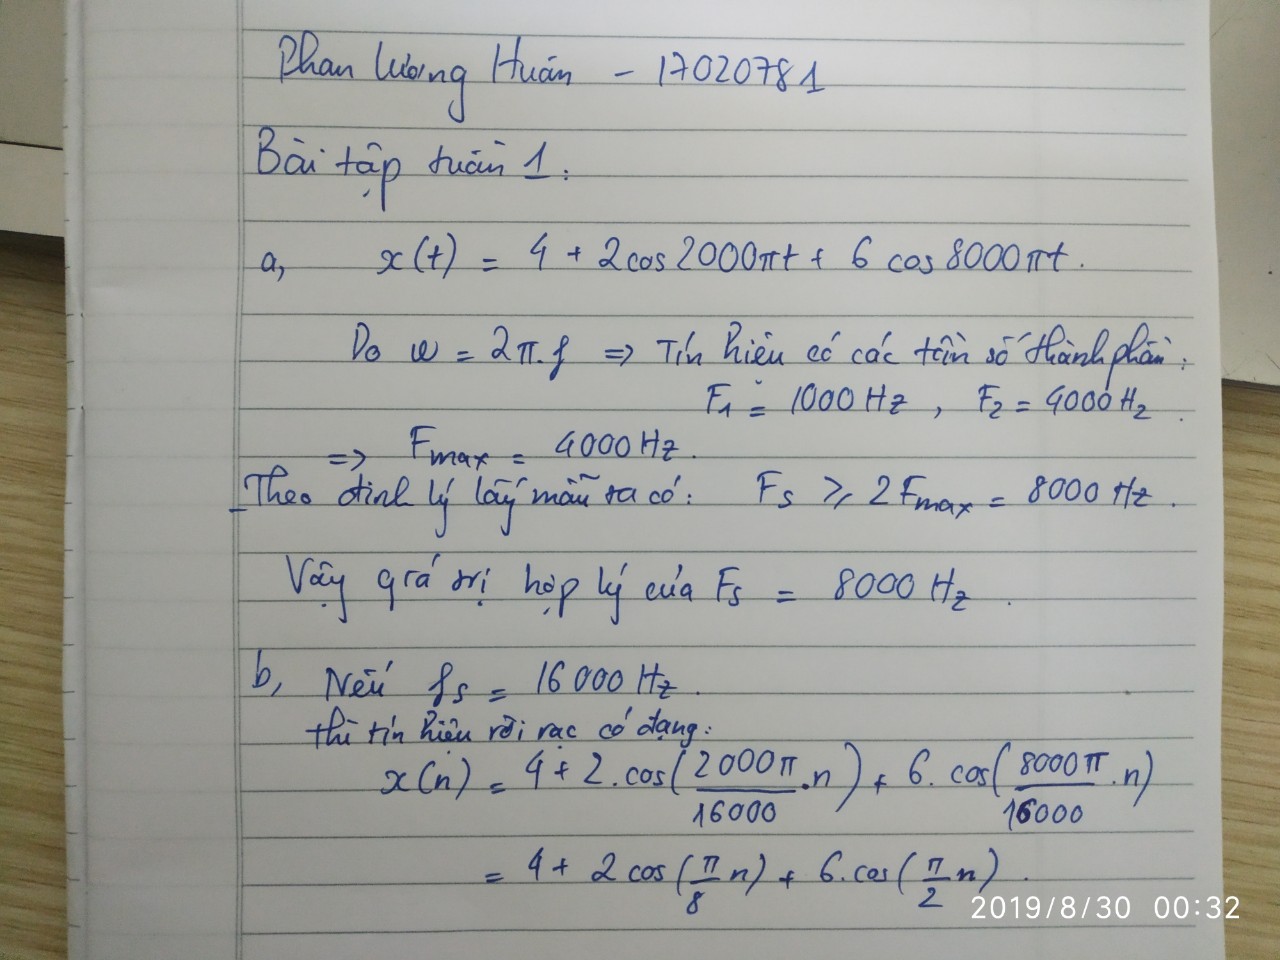 Phan Lương Huấn - 17020781
Bài tập tuần 1:
a, x(t) = 4 + 2cos2000πt + 6 cos8000πt.
Do ω = 2π.f => Tín hiệu có các tần số thành phần:
F1 = 1000 Hz, F2 = 4000 Hz.
=> Fmax = 4000 Hz.
Theo định lý lấy mẫu ta có: Fs ≥ 2Fmax = 8000 Hz.
Vậy giá trị hợp lý của Fs = 8000 Hz.
b, Nếu fs = 16000 Hz.
thì tín hiệu rời rạc có dạng:
x(n) = 4 + 2.cos(2000π/16000 .n) + 6.cos(8000π/16000 .n)
= 4 + 2cos(π/8 n) + 6.cos(π/2 n).
2019/8/30 00:32